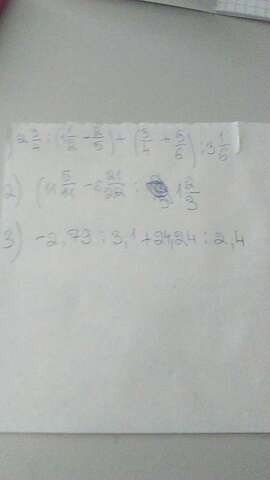 ) 2 3/4 : (1 1/2 - 2/5) + (3/4 + 5/6) : 3 1/6
2) (11 5/11 - 8 21/22 : 1 2/3
3) -2,73 : 3,1 + 24,24 : 2,4